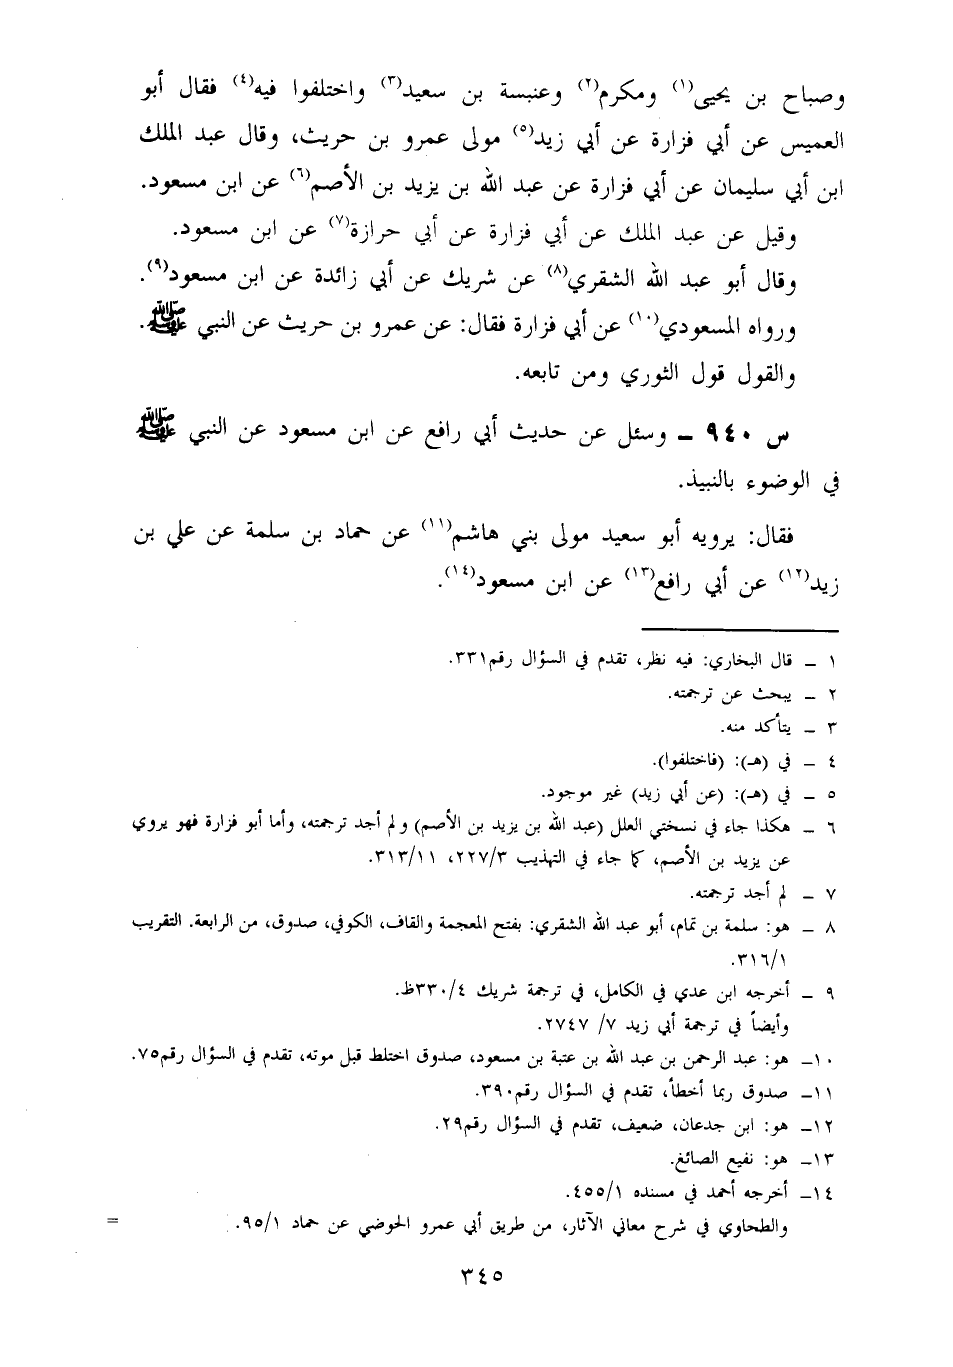 وصباح بن يحيى(١) ومكرم(٢) وعنبسة بن سعيد(٣) واختلفوا فيه(٤) فقال أبو
العميس عن أبي فزارة عن أبي زيد(٥) مولى عمرو بن حريث، وقال عبد الملك
ابن أبي سليمان عن أبي فزارة عن عبد الله بن يزيد بن الأصم(٦) عن ابن مسعود.
وقيل عن عبد الملك عن أبي فزارة عن أبي حرازة(٧) عن ابن مسعود.
وقال أبو عبد الله الشقري(٨) عن شريك عن أبي زائدة عن ابن مسعود(٩).
ورواه المسعودي(١٠) عن أبي فزارة فقال: عن عمرو بن حريث عن النبي ﷺ.
والقول قول الثوري ومن تابعه.
س ٩٤٠ ـ وسئل عن حديث أبي رافع عن ابن مسعود عن النبي ﷺ
في الوضوء بالنبيذ.
فقال: يرويه أبو سعيد مولى بني هاشم(١١) عن حماد بن سلمة عن علي بن
زيد(١٢) عن أبي رافع(١٣) عن ابن مسعود(١٤).
١ ـ قال البخاري: فيه نظر، تقدم في السؤال رقم٣٣١.
٢ ـ يبحث عن ترجمته.
٣ ـ يتأكد منه.
٤ ـ في (هـ): (فاختلفوا).
٥ ـ في (هـ): (عن أبي زيد) غير موجود.
٦ ـ هكذا جاء في نسختي العلل (عبد الله بن يزيد بن الأصم) ولم أجد ترجمته، وأما أبو فزارة فهو يروي
عن يزيد بن الأصم، كما جاء في التهذيب ٢٢٧/٣، ٣١٣/١١.
٧ ـ لم أجد ترجمته.
٨ ـ هو: سلمة بن تمام، أبو عبد الله الشقري: بفتح المعجمة والقاف، الكوفي، صدوق، من الرابعة. التقريب
٣١٦/١.
٩ ـ أخرجه ابن عدي في الكامل، في ترجمة شريك ٤/٣٣٠ظ.
وأيضاً في ترجمة أبي زيد ٧/ ٢٧٤٧.
١٠ـ هو: عبد الرحمن بن عبد الله بن عتبة بن مسعود، صدوق اختلط قبل موته، تقدم في السؤال رقم٧٥.
١١ـ صدوق ربما أخطأ، تقدم في السؤال رقم٣٩٠.
١٢ـ هو: ابن جدعان، ضعيف، تقدم في السؤال رقم٢٩.
١٣ـ هو: نفيع الصائغ.
١٤ـ أخرجه أحمد في مسنده ٤٥٥/١.
والطحاوي في شرح معاني الآثار، من طريق أبي عمرو الحوضي عن حماد ٩٥/١. =
٣٤٥